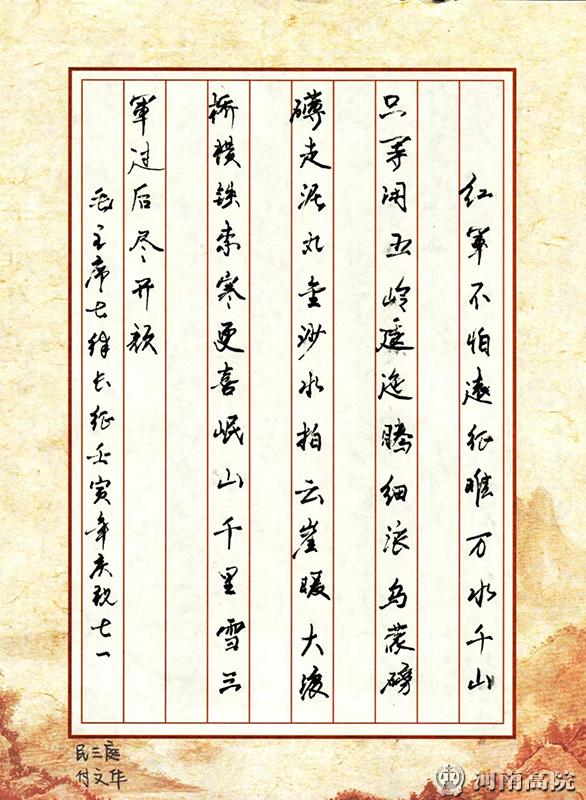 红军不怕远征难万水千山
只等闲五岭逶迤腾细浪乌蒙磅
礴走泥丸金沙水拍云崖暖大渡
桥横铁索寒更喜岷山千里雪三
军过后尽开颜
毛主席七律长征壬寅年庆祝七一
民三庭
付文华
河南高院